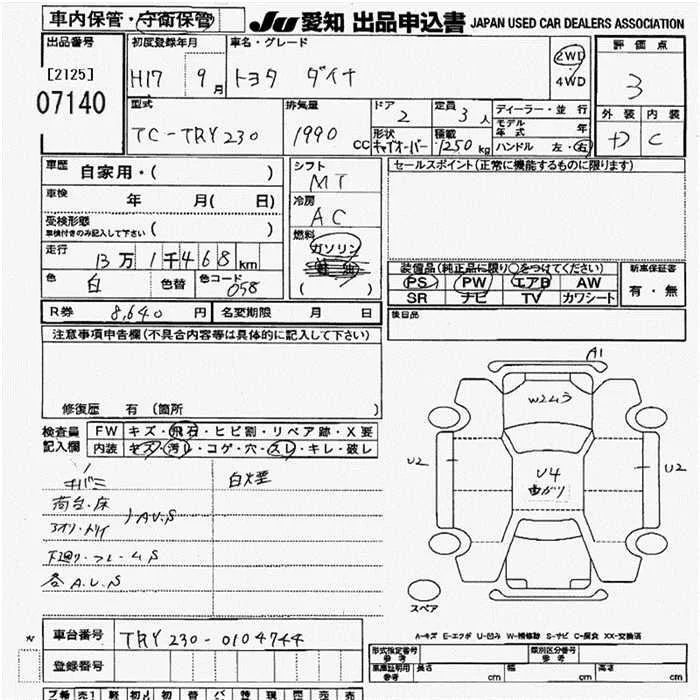 車内保管・守衛保管
JU 愛知 出品申込書 JAPAN USED CAR DEALERS ASSOCIATION
出品番号 初度登録年月 車名・グレード 評価点
[2125] H17 9月 トヨタ ダイナ 2WD 4WD 3
07140
型式 排気量 ドア 2 定員 3人 ディーラー・並行 外装 内装
TC-TRY230 1990 CC 形状 積載 1250kg モデル年式 年 C
ハンドル 左・右
車歴 自家用・( ) シフト MT セールスポイント(正常に機能するものに限ります)
車検 年 月( 日) 冷房 AC
受検形態 車検付きのみ記入して下さい ( ) 燃料 ガソリン
走行 13万1千468km ( )
色 白 色替 色コード 058
装備品(純正品に限り○をつけてください) 新車保証書
PS PW エアB AW 有・無
SR ナビ TV カワシート
R券 8,640円 名変期限 月 日 後日品
注意事項申告欄(不具合内容等は具体的に記入して下さい)
修復歴 有 (箇所 )
検査員記入欄 FW キズ・飛石・ヒビ割・リペア跡・X要
内装 キズ・汚レ・コゲ・穴・スレ・キレ・破レ
キバミ 白煙
荷台・床
アオリ・トリイ A.U.S
下廻り・フレームS
各A.U.S
A1
W2ムラ
U2 U4 U2
曲がり
スペア
A-キズ E-エクボ U-凹み W-補修跡 S-サビ C-腐食 XX-交換済
車台番号 TRY230-0104744
登録番号
形式指定番号 参考 類別区分番号 参考
車庫証明用 参考 長さ cm 幅 cm 高さ cm